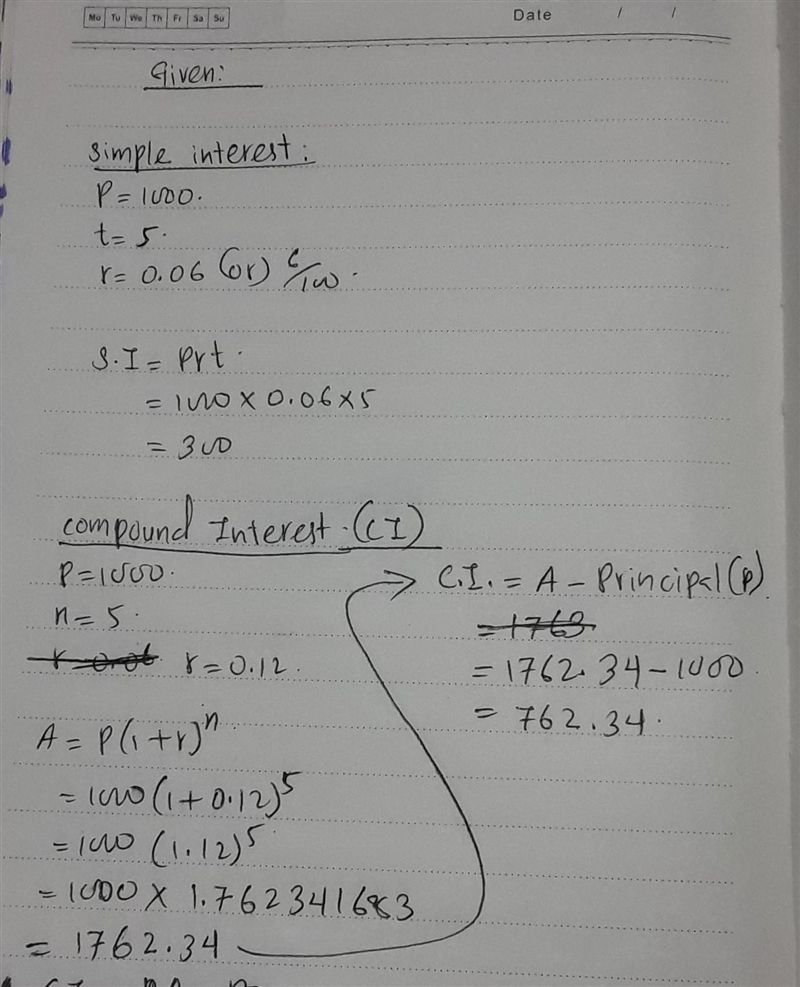 Mo Tu We Th Fr Sa Su
Date / /
Given:
simple interest:
P = 1000.
t = 5.
r = 0.06 (or) 6/100.
S.I = Prt.
= 1000 × 0.06 × 5
= 300
compound Interest. (CI)
P = 1000.
n = 5.
r = 0.06 r = 0.12.
A = P(1+r)^n
= 1000 (1 + 0.12)^5
= 1000 (1.12)^5
= 1000 × 1.762341683
= 1762.34
C.I. = A - Principal (P).
= 1763
= 1762.34 - 1000.
= 762.34.